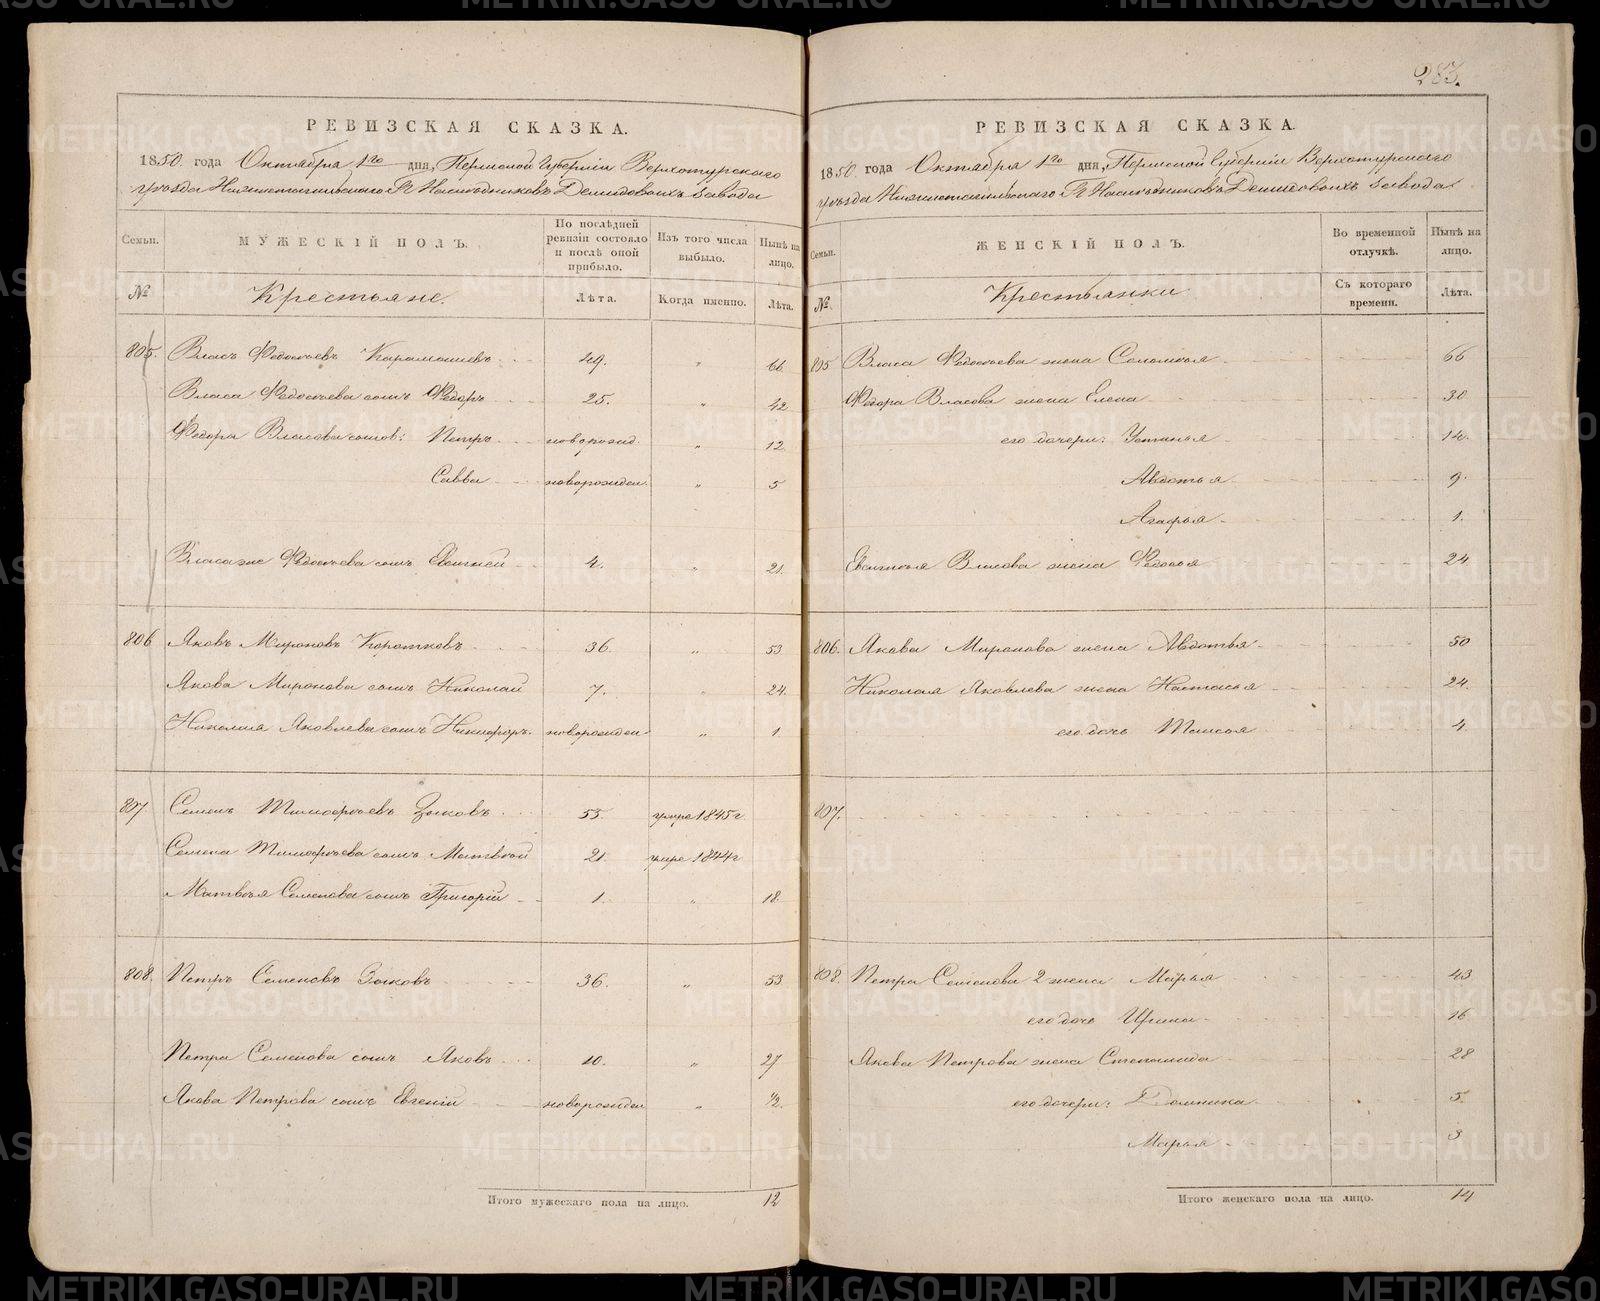 283.
РЕВИЗСКАЯ СКАЗКА.
1850 года Октября 1го дня, Пермской Губернии Верхотурского
уезда Нижнетагильского Гг. Наследниковъ Демидовыхъ завода
Семьи. МУЖЕСКІЙ ПОЛЪ. По послѣдней ревизіи состояло и послѣ оной прибыло. Изъ того числа выбыло. Нынѣ на лицо.
№ Крестьяне. Лѣта. Когда именно. Лѣта.
805. Власъ Федосѣевъ 49. „ 66
Власа Федосѣева сынъ Федоръ 25. „ 42
Федора Власова сынов: Петръ новорожд. „ 12
Савва новорожден. „ 5
Власа же Федосѣева сынъ Евстигней 4. „ 21.
806 Яковъ Мироновъ Коротковъ 36. „ 53
Якова Миронова сынъ Николай 7. „ 24.
Николая Яковлева сынъ Никифоръ новорожден „ 1
807. Семенъ Тимофѣевъ Зыковъ 55. умре 1845 г
Семена Тимофѣева сынъ Матвѣй 21. умре 1844 г
Матвѣя Семенова сынъ Григорій 1. „ 18.
808. Петръ Семеновъ Зыковъ 36. „ 53
Петра Семенова сынъ Яковъ 10. „ 27
Якова Петрова сынъ Евгеній новорожден „ 1/2.
Итого мужескаго пола на лицо. 12
РЕВИЗСКАЯ СКАЗКА.
1850 года Октября 1го дня, Пермской Губерніи Верхотурскаго
уѣзда Нижнетагильскаго Гг. Наслѣдниковъ Демидовыхъ завода.
Семьи. ЖЕНСКІЙ ПОЛЪ. Во временной отлучкѣ. Нынѣ на лицо.
№ Крестьянки Съ котораго времени. Лѣта.
805 Власа Федосѣева жена Соломѣя 66
Федора Власова жена Елена 30
его дочери: Устинья 14.
Авдотья 9.
Агафья 1.
Евстигнѣя Власова жена Федосья 24
806. Якова Миронова жена Авдотья 50
Николая Яковлева жена Настасья 24.
его дочь Таисья 4
807.
808. Петра Семенова 2 жена Марья 43
его дочь Ирина 16
Якова Петрова жена Степанида 28
его дочери: Домника 5.
Марья 3
Итого женскаго пола на лицо. 14
METRIKI.GASO-URAL.RU